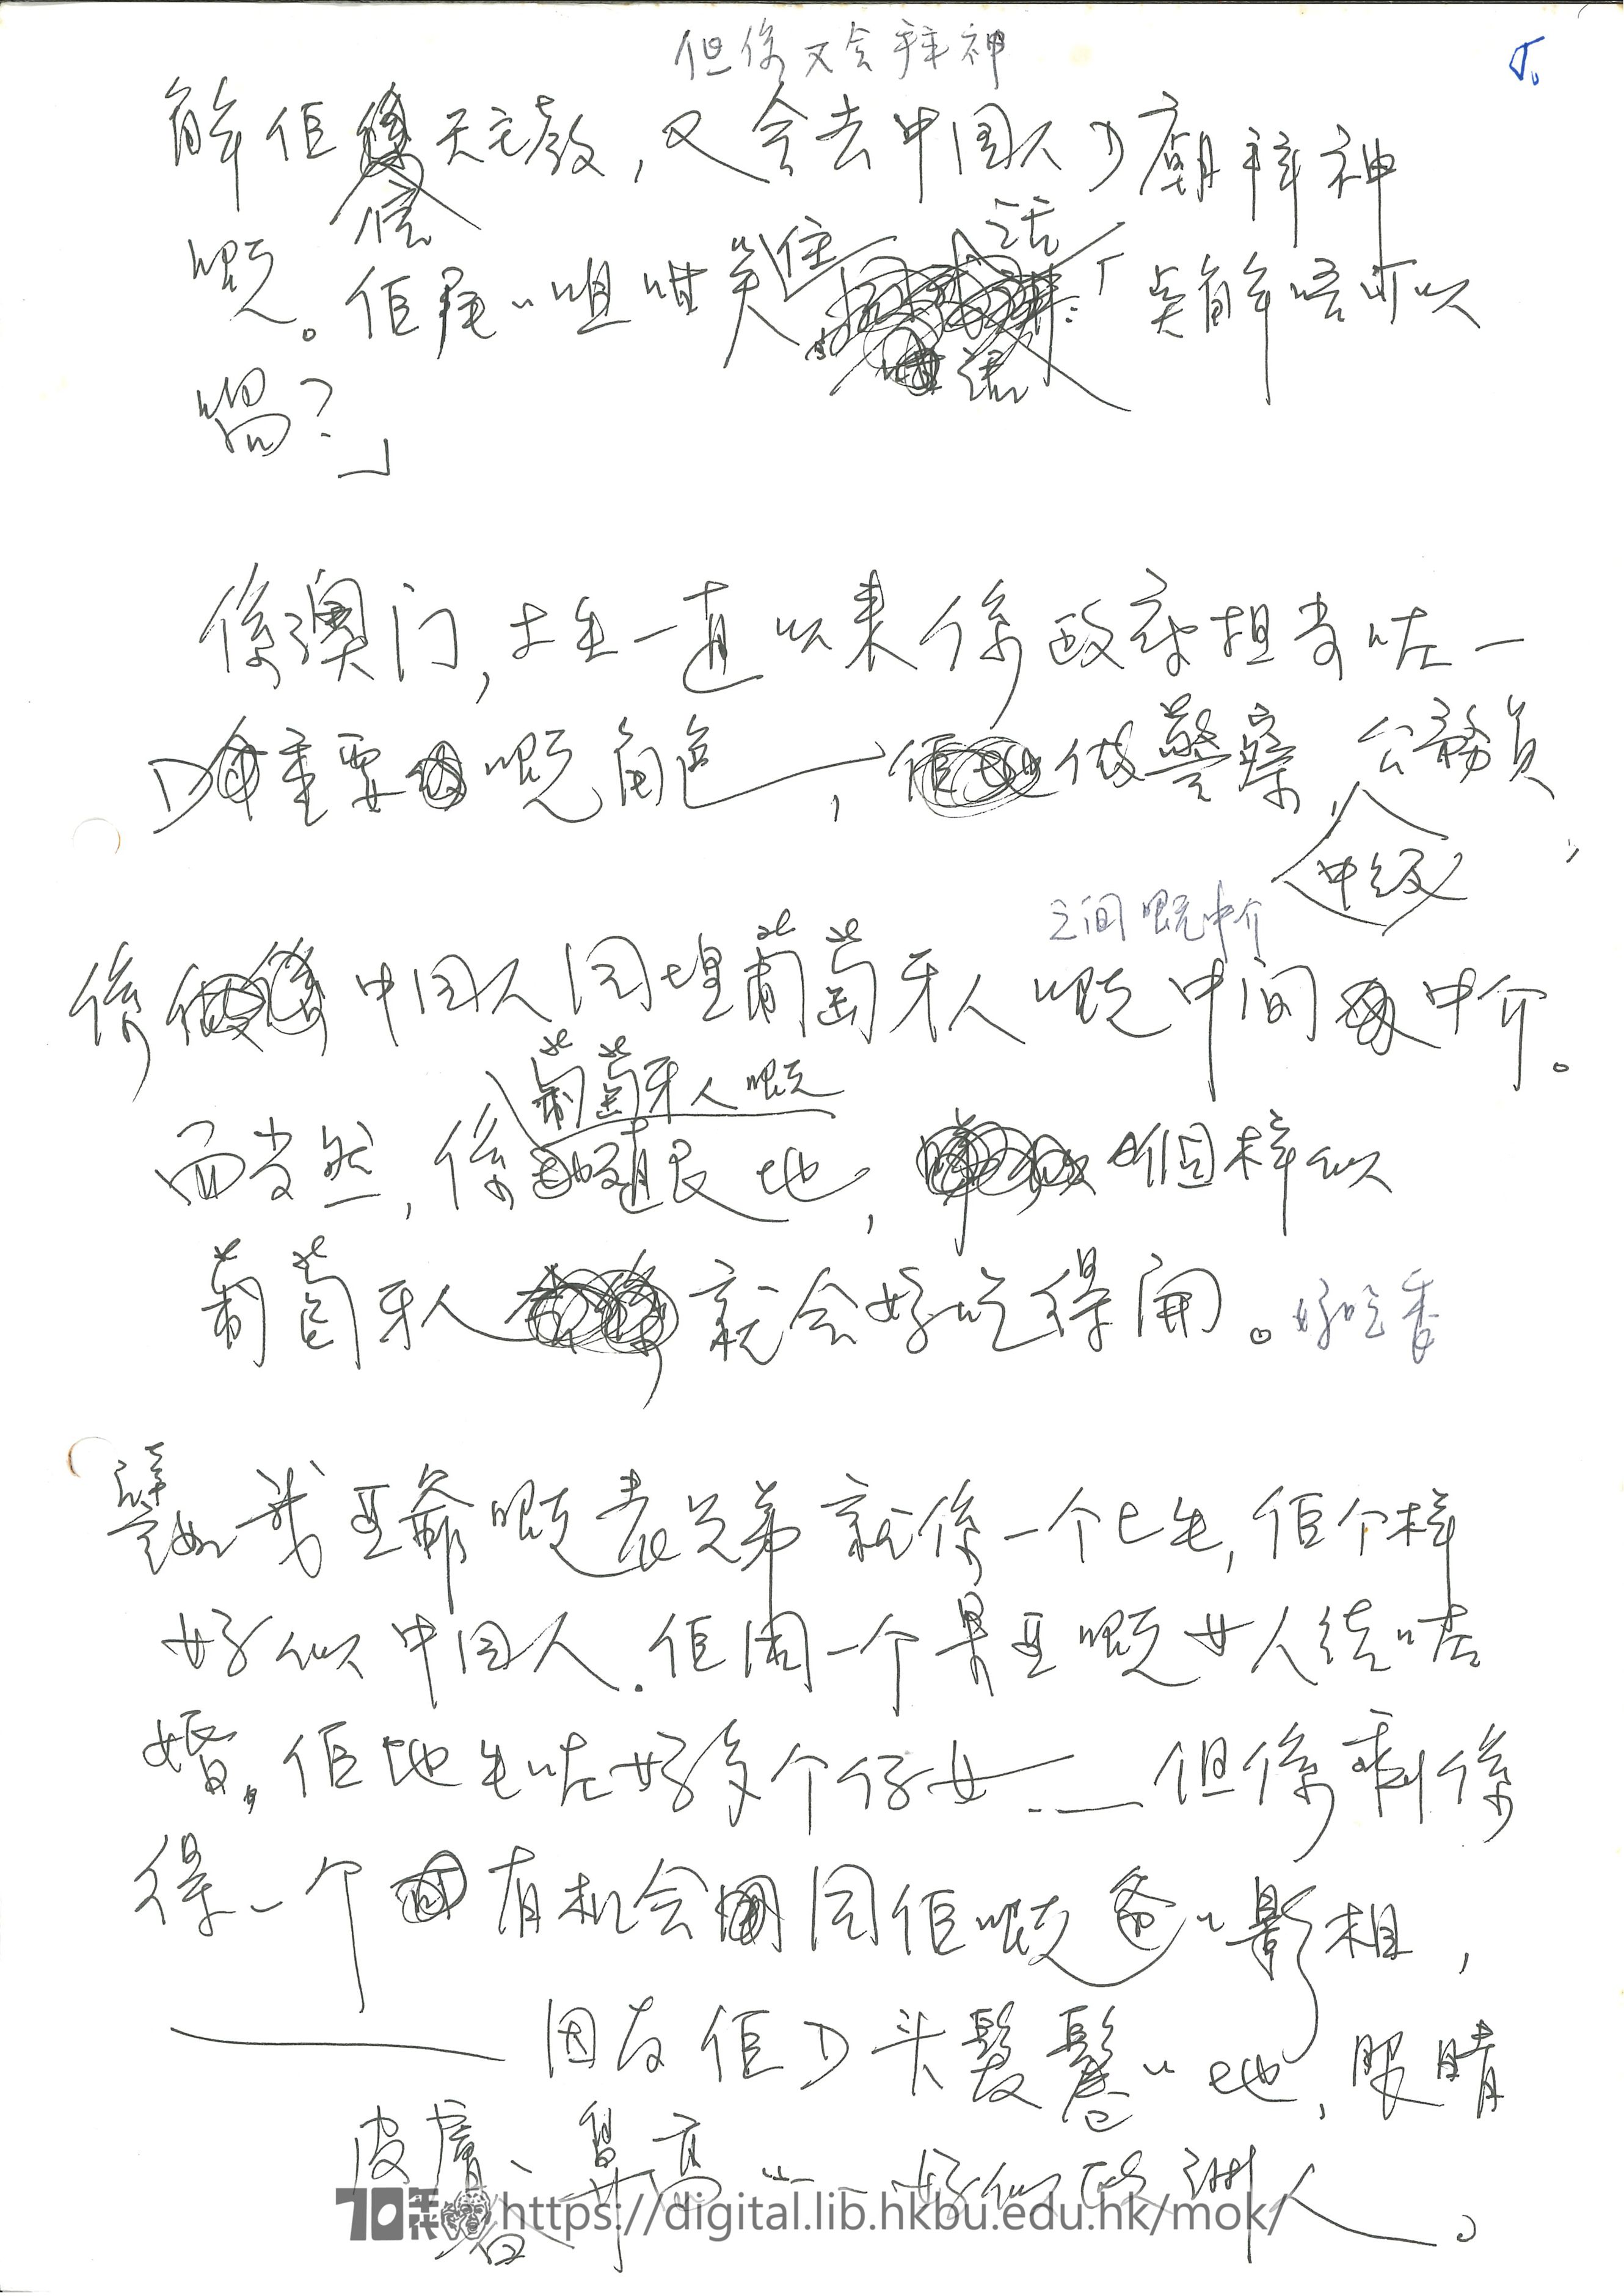 但係又会拜神
5.
解佢信天主教，又会去中国人D廟拜神
嘅。佢尾〻咀咁笑住話：「点解唔可以
喎？」
係澳门，土生一直以来係政府担当咗一
D重要嘅角色，做警察、中級公務員，
之间嘅中介
係中国人同埋葡萄牙人嘅中间中介。
葡萄牙人嘅
而当然，係殖民地，個样似
葡萄牙人就会好吃得開。好吃香
譬如我亚爺嘅表兄弟就係一个土生，佢个样
好似中国人．佢同一个果亚嘅女人结咗
婚，佢地生咗好多个仔女……但係剩係
得一个有机会同佢嘅爸〻影相，
因为佢D头髮鬈〻地，眼晴
皮膚白、鼻高……好似欧洲人。
70年代 https://digital.lib.hkbu.edu.hk/mok/